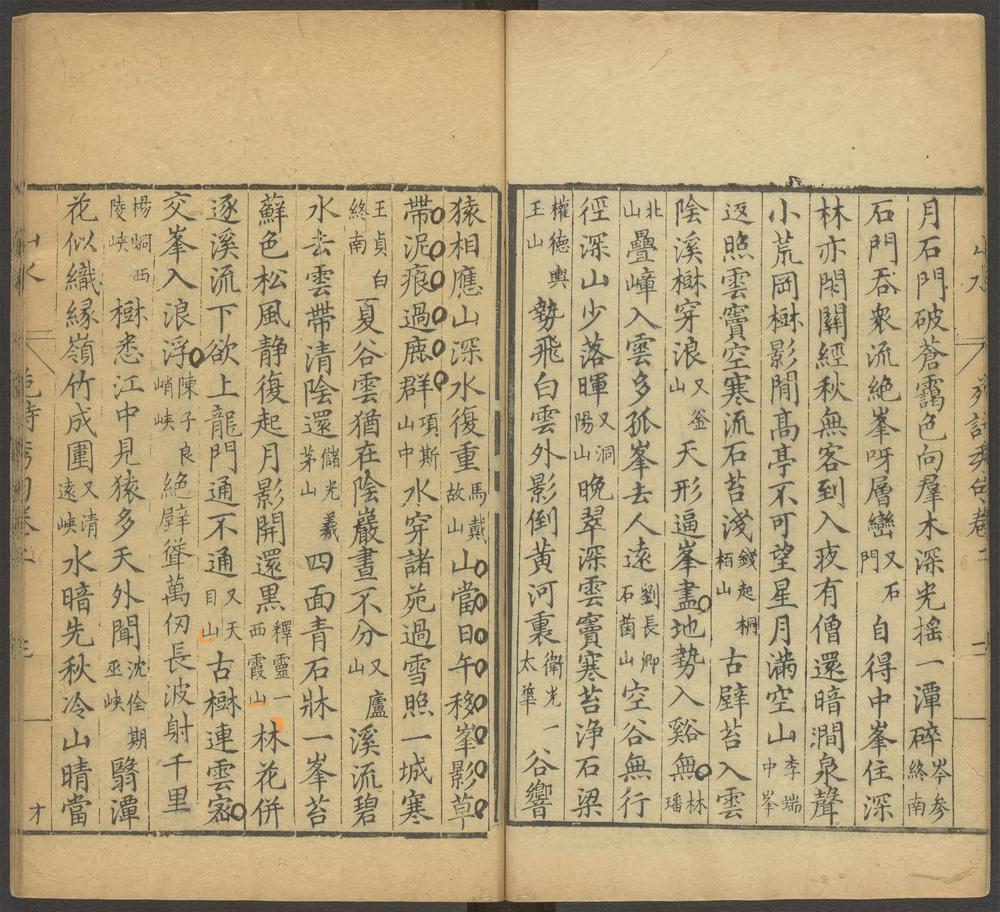 月石門破蒼靄色向羣木深光搖一潭碎岑参終南
石門吞衆流絶峯呀層巒又石門自得中峯住深
林亦閑關經秋無客到入夜有僧還暗澗泉聲
小荒岡樹影閒高亭不可望星月滿空山李端中峯
返照雲竇空寒流石苔淺錢起桐栢山古壁苔入雲
陰溪樹穿浪又釜山天形逼峯盡地勢入谿無林璠
北山疊嶂入雲多孤峯去人遠劉長卿石菌山空谷無行
徑深山少落暉又洞陽山晚翠深雲竇寒苔浄石梁
權德輿玉山勢飛白雲外影倒黄河裏衛光一太華谷響
猿相應山深水復重馬戴故山山當日午移峯影草
帶泥痕過鹿群項斯山中水穿諸苑過雪照一城寒
王貞白終南夏谷雲猶在陰巖晝不分又廬山溪流碧
水去雲帶清陰還儲光羲茅山四面青石牀一峯苔
蘚色松風静復起月影開還黒釋靈一西霞山林花併
逐溪流下欲上龍門通不通又天目山古樹連雲密
交峯入浪浮陳子良峭峡絶壁聳萬仞長波射千里
楊炯西陵峡樹悉江中見猿多天外聞沈佺期巫峡翳潭
花似織緣嶺竹成圍又清遠峡水暗先秋冷山晴當